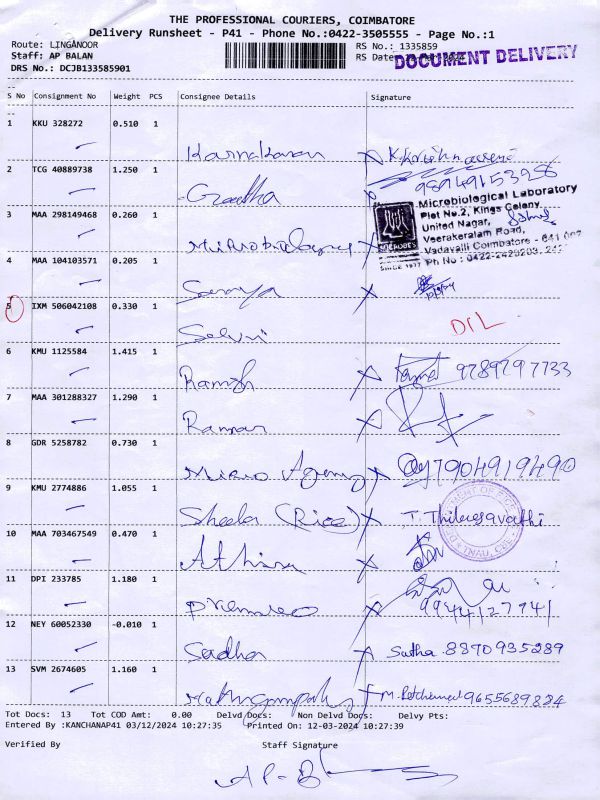 THE PROFESSIONAL COURIERS, COIMBATORE
Delivery Runsheet - P41 - Phone No.:0422-3505555 - Page No.:1
Route: LINGANOOR
Staff: AP BALAN
DRS No.: DCJB133585901
RS No.: 1335859
RS Date
DOCUMENT DELIVERY
S No Consignment No Weight PCS Consignee Details Signature
1 KKU 328272 0.510 1
2 TCG 40889738 1.250 1 Geetha
Microbiological Laboratory
Plot No.2, Kings Colony,
United Nagar,
Veerakeralam Road,
Vadavalli Coimbatore - 641 007
SINCE 1977
3 MAA 298149468 0.260 1
4 MAA 104103571 0.205 1 Sarmya
5 IXM 506042108 0.330 1 Selvi DIL
6 KMU 1125584 1.415 1 Ramesh 9789797733
7 MAA 301288327 1.290 1 Raman
8 GDR 5258782 0.730 1 Micro Agency 7904919490
9 KMU 2774886 1.055 1 Sheela (Rice)
10 MAA 703467549 0.470 1 Athira
11 DPI 233785 1.180 1 9944127941
12 NEY 60052330 -0.010 1 Sudha Sudha 8870935289
13 SVM 2674605 1.160 1 9655689824
Tot Docs: 13 Tot COD Amt: 0.00 Delvd Docs: Non Delvd Docs: Delvy Pts:
Entered By :KANCHANAP41 03/12/2024 10:27:35 Printed On: 12-03-2024 10:27:39
Verified By Staff Signature